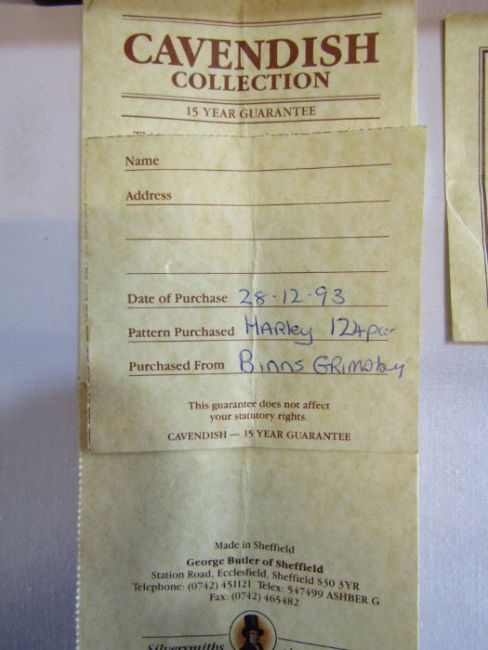 CAVENDISH
COLLECTION
15 YEAR GUARANTEE
Name
Address
Date of Purchase 28-12-93
Pattern Purchased HARLey 124pce
Purchased From Binns GRIMSby
This guarantee does not affect
your statutory rights.
CAVENDISH — 15 YEAR GUARANTEE
Made in Sheffield
George Butler of Sheffield
Station Road, Ecclesfield, Sheffield S30 3YR
Telephone: (0742) 451121 Telex: 547499 ASHBER G
Fax: (0742) 465482
Silversmiths